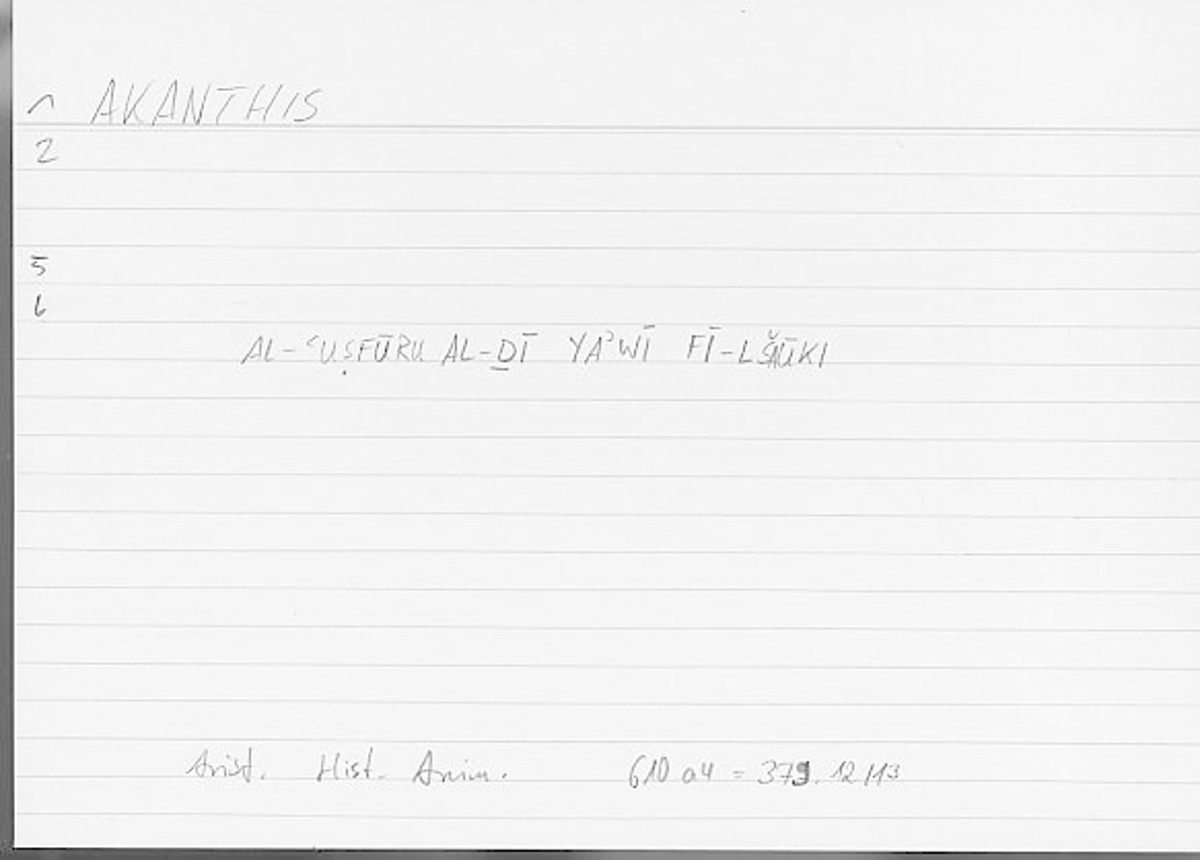 1 AKANTHIS
2
5
6
AL-ʿUṢFŪRU AL-ḎĪ YAʾWĪ FĪ-LŠAUKI
Arist. Hist. Anim. 610 a4 = 379.12/13